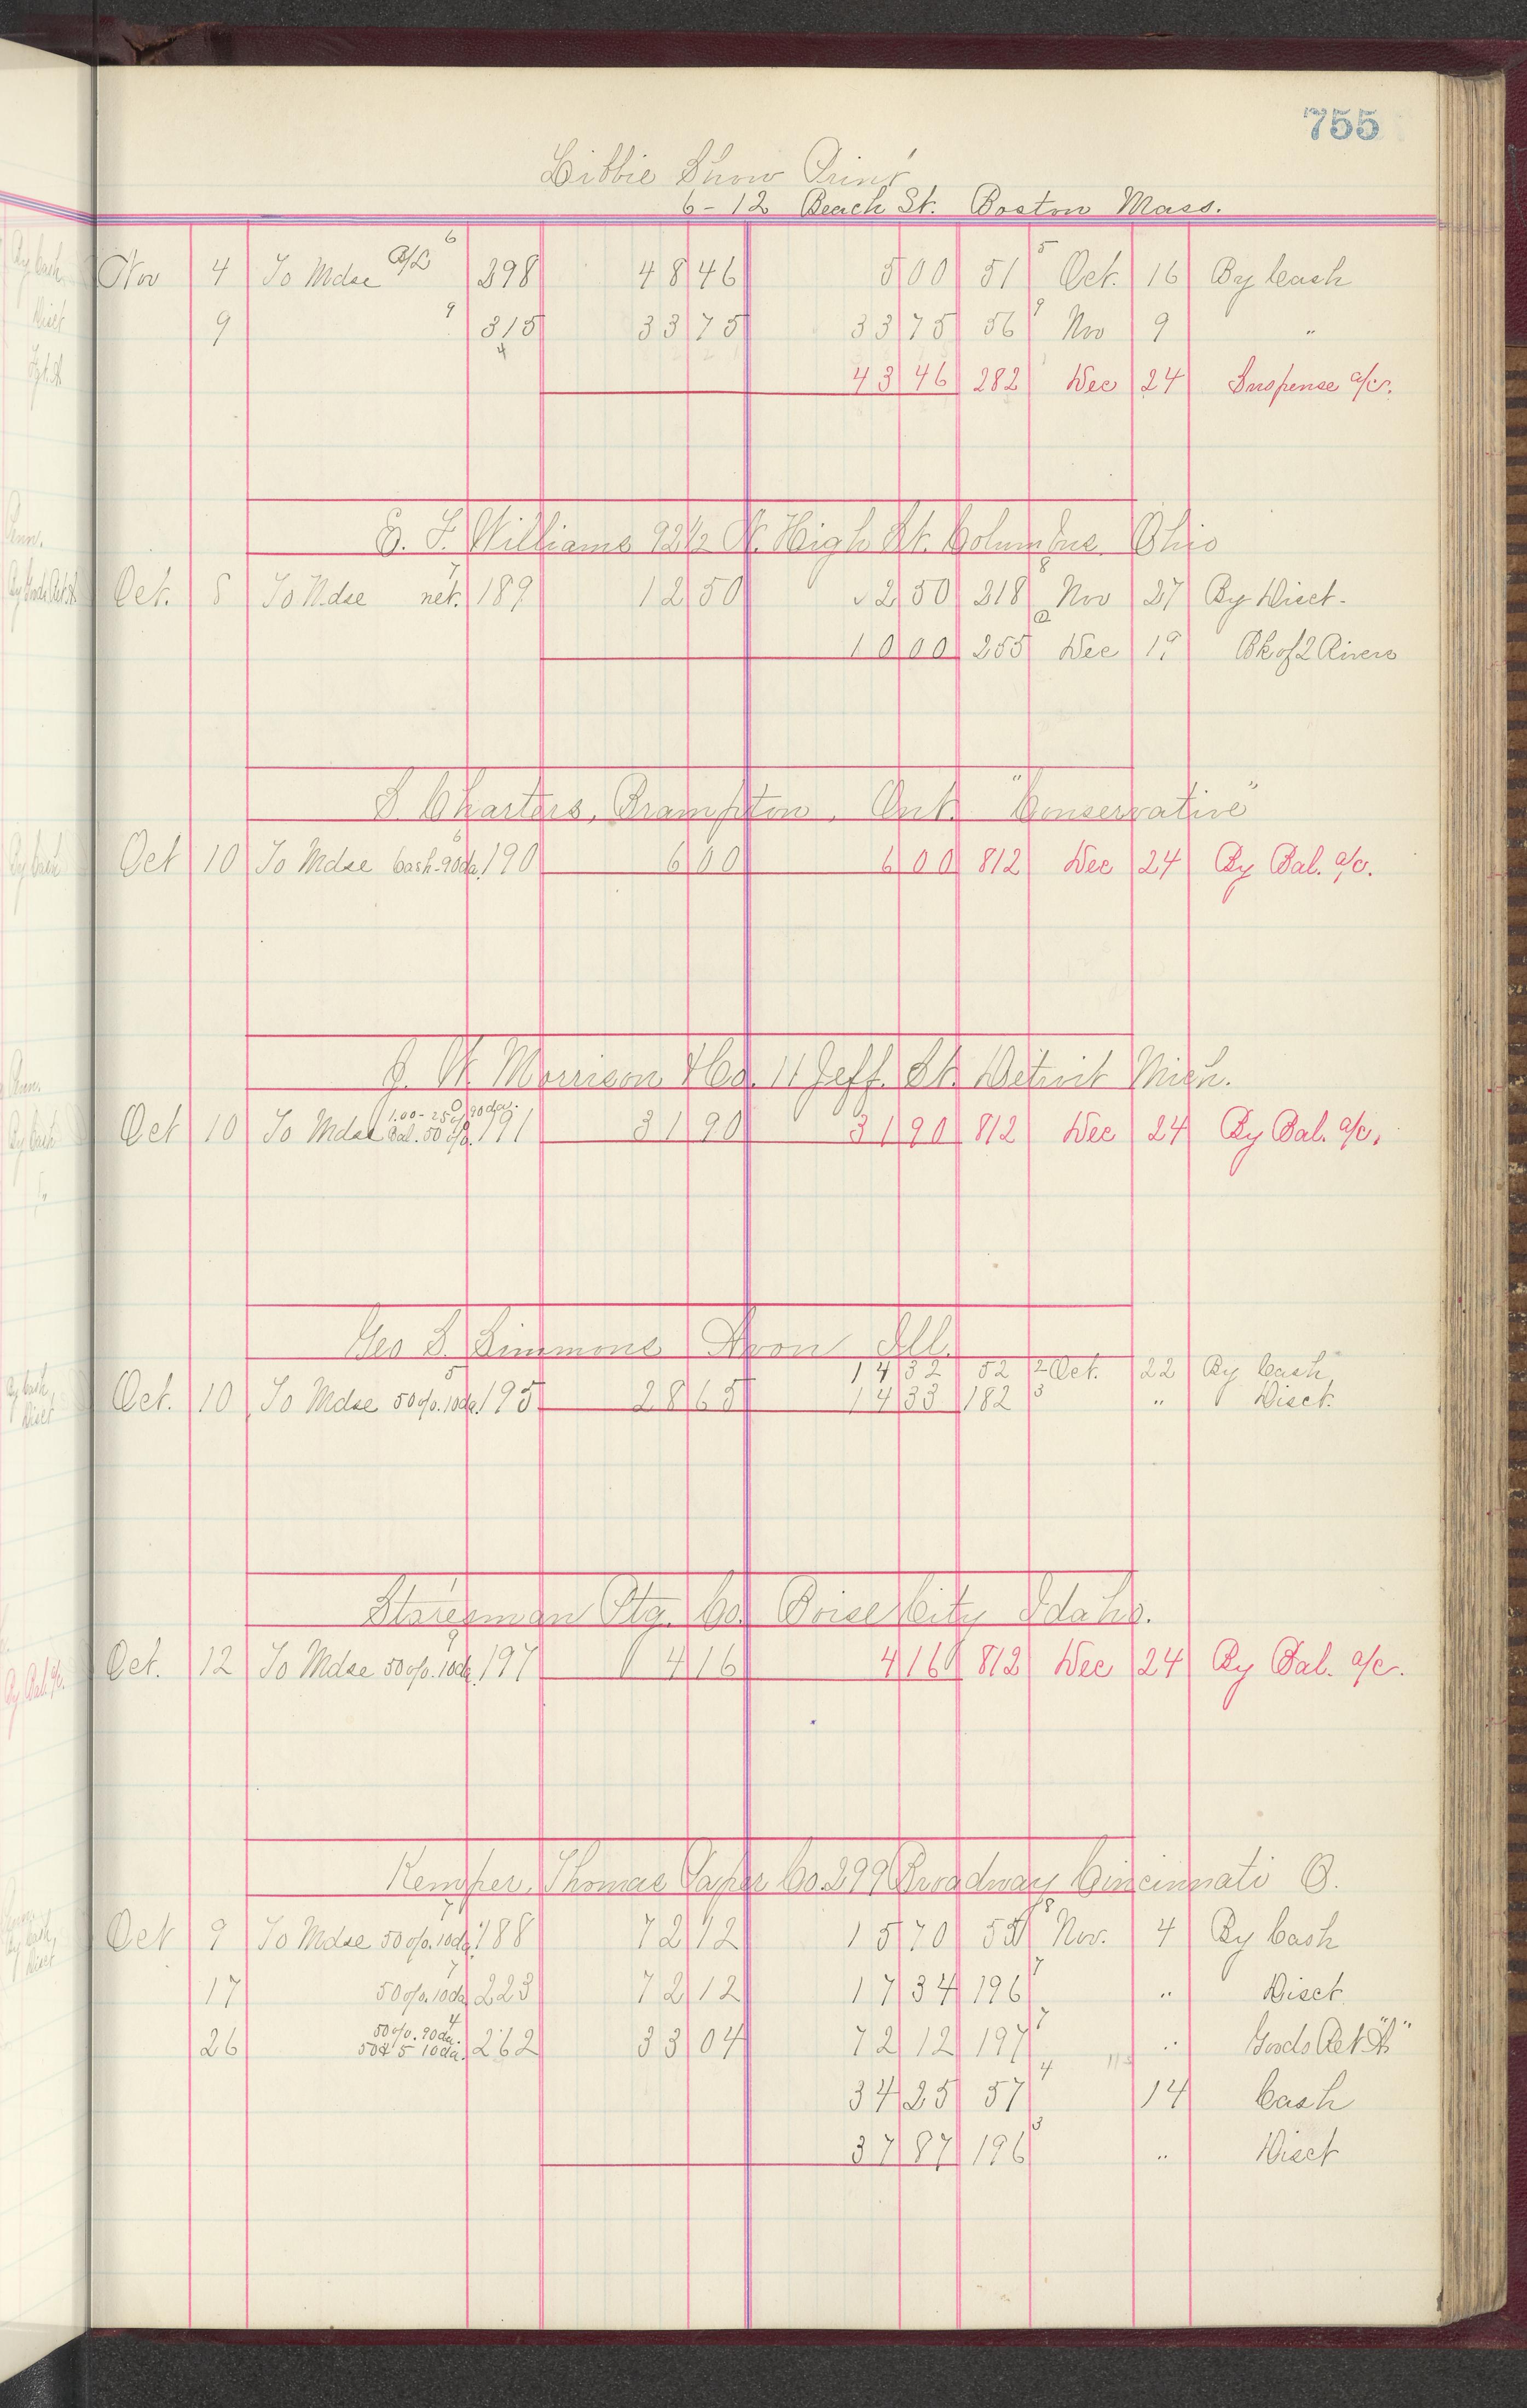 755
Libbie Show Print
6-12 Beach St. Boston Mass.
Nov 4 To Mdse 6 298 48 46 5 00 51 5 Oct. 16 By Cash
9 9 315 33 75 33 75 56 9 Nov 9 "
4 43 46 282 Dec 24 Suspense a/c.
E. F. Williams 92½ N. High St. Columbus Ohio
Oct. 8 To Mdse net. 7 189 12 50 ✓ 2 50 218 8 Nov 27 By Disct.
10 00 255 Dec 19 Bk of 2 Rivers
S. Charters, Brampton, Ont. "Conservative"
Oct 10 To Mdse Cash-90da. 6 190 6 00 6 00 812 Dec 24 By Bal. a/c.
J. W. Morrison & Co. 11 Jeff. St. Detroit Mich.
1.00-25% 90da.
Oct 10 To Mdse Bal. 50% 191 31 90 31 90 812 Dec 24 By Bal. a/c.
Geo S. Simmons Avon Ill.
14 32 52 2 Oct. 22 By Cash
Oct. 10 To Mdse 50%.10da. 5 195 28 65 14 33 182 3 " Disct.
Statesman Ptg. Co. Boise City Idaho.
Oct. 12 To Mdse 50%.10da. 197 4 16 4 16 812 Dec 24 By Bal. a/c.
Kemper, Thomas Paper Co. 299 Broadway Cincinnati O.
Oct 9 To Mdse 50%.10da. 7 188 72 12 15 70 55 8 Nov. 4 By Cash
17 50%.10da 7 223 72 12 17 34 196 7 " Disct
50%.90da.
26 50&5 10da. 4 262 33 04 72 12 197 7 " Goods Ret "A"
34 25 57 4 14 Cash
37 87 196 3 " Disct